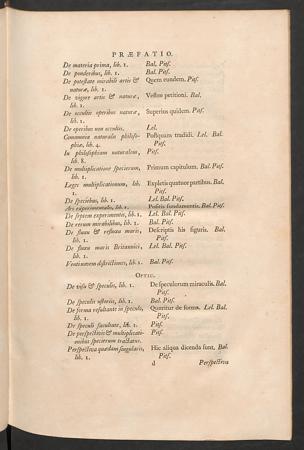 PRÆFATIO.
De materia prima, lib. 1. Bal. Pits.
De ponderibus, lib. 1. Bal. Pits.
De potestate mirabili artis & Quem eundem. Pits.
naturæ, lib. 1.
De vigore artis & naturæ, Vestræ petitioni. Bal.
lib. 1.
De occultis operibus naturæ, Superius quidem. Pits.
lib. 1.
De operibus non occultis, Lel.
Communia naturalis philoso- Postquam tradidi. Lel. Bal.
phiæ, lib. 4. Pits.
In philosophiam naturalem, Pits.
lib. 8.
De multiplicatione specierum, Primum capitulum. Bal. Pits.
lib. 1.
Leges multiplicationum, lib. Expletis quatuor partibus. Bal.
1. Pits.
De speciebus, lib. 1. Lel. Bal. Pits.
Ars experimentalis, lib. 1. Positis fundamentis. Bal. Pits.
De septem experimentis, lib. 1. Lel. Bal. Pits.
De rerum mirabilibus, lib. 1. Bal. Pits.
De fluxu & refluxu maris, Descriptis his figuris. Bal.
lib. 1. Pits.
De fluxu maris Britannici, Lel. Bal. Pits.
lib. 1.
Ventinarum distrectiones, lib. 1. Bal. Pits.
OPTIC.
De visu & speculis, lib. 1. De speculorum miraculis. Bal.
Pits.
De speculis ustoriis, lib. 1. Bal. Pits.
De forma resultante in speculo, Quæritur de forma. Lel. Bal.
lib. 1. Pits.
De speculi facultate, lib. 1. Pits.
De perspectivis & multiplicati- Pits.
onibus specierum tractatus.
Perspectiva quædam singularis, Hic aliqua dicenda sunt. Bal.
lib. 1. Pits.
d Perspectiva